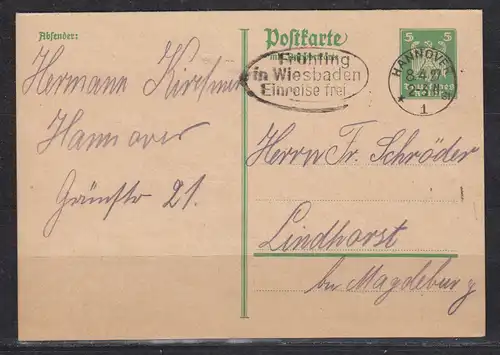 Absender:
Postkarte
mit Antwortkarte
5 5
Frühling
in Wiesbaden
Einreise frei
HANNOVER
8.4.27
* 1
Hermann Kirchner
Hannover
Grünstr 21.
Herrn Fr. Schröder
Lindhorst
bei Magdeburg